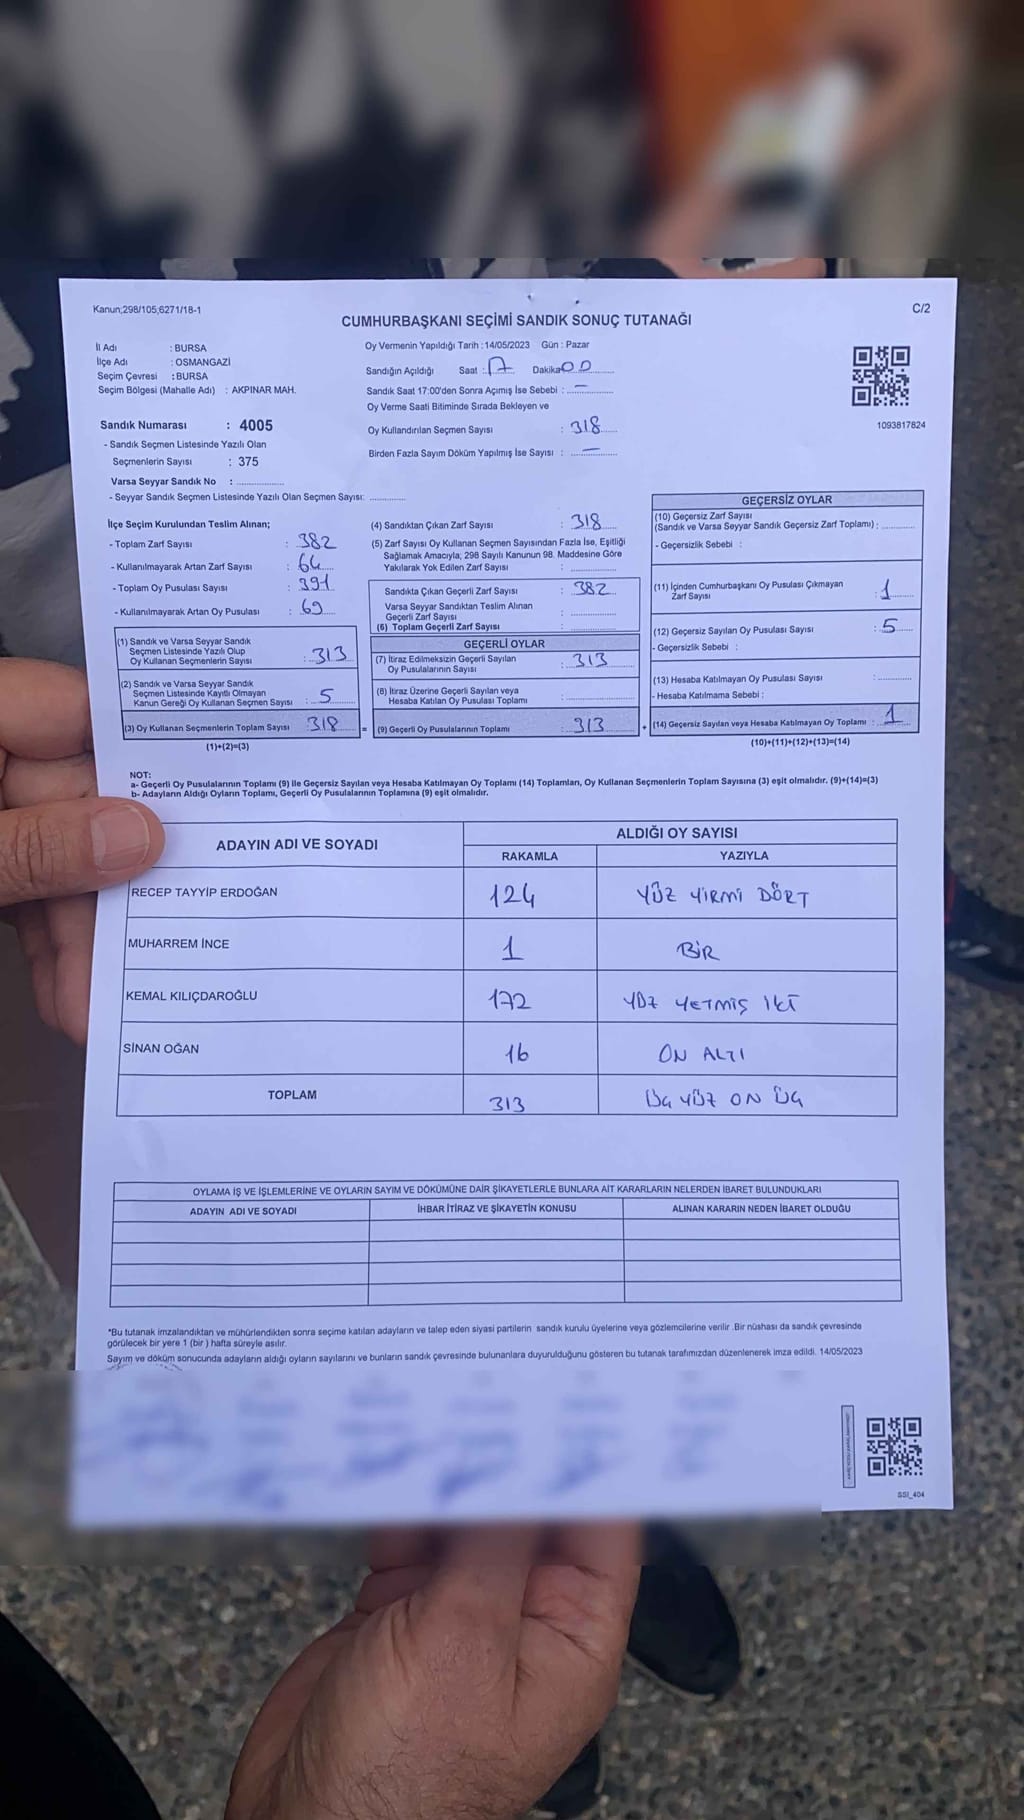 Kanun;298/105;6271/18-1
C/2
CUMHURBAŞKANI SEÇİMİ SANDIK SONUÇ TUTANAĞI
İl Adı : BURSA
İlçe Adı : OSMANGAZİ
Seçim Çevresi : BURSA
Seçim Bölgesi (Mahalle Adı) : AKPINAR MAH.
Oy Vermenin Yapıldığı Tarih : 14/05/2023 Gün : Pazar
Sandığın Açıldığı Saat : 17 Dakika 00
Sandık Saat 17:00'den Sonra Açımış İse Sebebi : —
Oy Verme Saati Bitiminde Sırada Bekleyen ve
Oy Kullandırılan Seçmen Sayısı : 318
Birden Fazla Sayım Döküm Yapılmış İse Sayısı : —
1093817824
Sandık Numarası : 4005
- Sandık Seçmen Listesinde Yazılı Olan
Seçmenlerin Sayısı : 375
Varsa Seyyar Sandık No :
- Seyyar Sandık Seçmen Listesinde Yazılı Olan Seçmen Sayısı:
İlçe Seçim Kurulundan Teslim Alınan;
- Toplam Zarf Sayısı : 382
- Kullanılmayarak Artan Zarf Sayısı : 64
- Toplam Oy Pusulası Sayısı : 391
- Kullanılmayarak Artan Oy Pusulası : 69
(1) Sandık ve Varsa Seyyar Sandık
Seçmen Listesinde Yazılı Olup
Oy Kullanan Seçmenlerin Sayısı : 313
(2) Sandık ve Varsa Seyyar Sandık
Seçmen Listesinde Kayıtlı Olmayan
Kanun Gereği Oy Kullanan Seçmen Sayısı : 5
(3) Oy Kullanan Seçmenlerin Toplam Sayısı : 318
(1)+(2)=(3)
(4) Sandıktan Çıkan Zarf Sayısı : 318
(5) Zarf Sayısı Oy Kullanan Seçmen Sayısından Fazla İse, Eşitliği
Sağlamak Amacıyla; 298 Sayılı Kanunun 98. Maddesine Göre
Yakılarak Yok Edilen Zarf Sayısı :
Sandıkta Çıkan Geçerli Zarf Sayısı : 382
Varsa Seyyar Sandıktan Teslim Alınan
Geçerli Zarf Sayısı :
(6) Toplam Geçerli Zarf Sayısı :
GEÇERLİ OYLAR
(7) İtiraz Edilmeksizin Geçerli Sayılan
Oy Pusulalarının Sayısı : 313
(8) İtiraz Üzerine Geçerli Sayılan veya
Hesaba Katılan Oy Pusulası Toplamı :
= (9) Geçerli Oy Pusulalarının Toplamı : 313
GEÇERSİZ OYLAR
(10) Geçersiz Zarf Sayısı
(Sandık ve Varsa Seyyar Sandık Geçersiz Zarf Toplamı) :
- Geçersizlik Sebebi :
(11) İçinden Cumhurbaşkanı Oy Pusulası Çıkmayan
Zarf Sayısı : 1
(12) Geçersiz Sayılan Oy Pusulası Sayısı : 5
- Geçersizlik Sebebi :
(13) Hesaba Katılmayan Oy Pusulası Sayısı :
- Hesaba Katılmama Sebebi :
+ (14) Geçersiz Sayılan veya Hesaba Katılmayan Oy Toplamı : 1
(10)+(11)+(12)+(13)=(14)
NOT:
a- Geçerli Oy Pusulalarının Toplamı (9) ile Geçersiz Sayılan veya Hesaba Katılmayan Oy Toplamı (14) Toplamları, Oy Kullanan Seçmenlerin Toplam Sayısına (3) eşit olmalıdır. (9)+(14)=(3)
b- Adayların Aldığı Oyların Toplamı, Geçerli Oy Pusulalarının Toplamına (9) eşit olmalıdır.
ADAYIN ADI VE SOYADI
ALDIĞI OY SAYISI
RAKAMLA YAZIYLA
RECEP TAYYİP ERDOĞAN 124 YÜZ YİRMİ DÖRT
MUHARREM İNCE 1 BİR
KEMAL KILIÇDAROĞLU 172 YÜZ YETMİŞ İKİ
SİNAN OĞAN 16 ON ALTI
TOPLAM 313 ÜÇ YÜZ ON ÜÇ
OYLAMA İŞ VE İŞLEMLERİNE VE OYLARIN SAYIM VE DÖKÜMÜNE DAİR ŞİKAYETLERLE BUNLARA AİT KARARLARIN NELERDEN İBARET BULUNDUKLARI
ADAYIN ADI VE SOYADI İHBAR İTİRAZ VE ŞİKAYETİN KONUSU ALINAN KARARIN NEDEN İBARET OLDUĞU
*Bu tutanak imzalandıktan ve mühürlendikten sonra seçime katılan adayların ve talep eden siyasi partilerin sandık kurulu üyelerine veya gözlemcilerine verilir .Bir nüshası da sandık çevresinde
görülecek bir yere 1 (bir ) hafta süreyle asılır.
Sayım ve döküm sonucunda adayların aldığı oyların sayılarını ve bunların sandık çevresinde bulunanlara duyurulduğunu gösteren bu tutanak tarafımızdan düzenlenerek imza edildi. 14/05/2023
SSİ_404